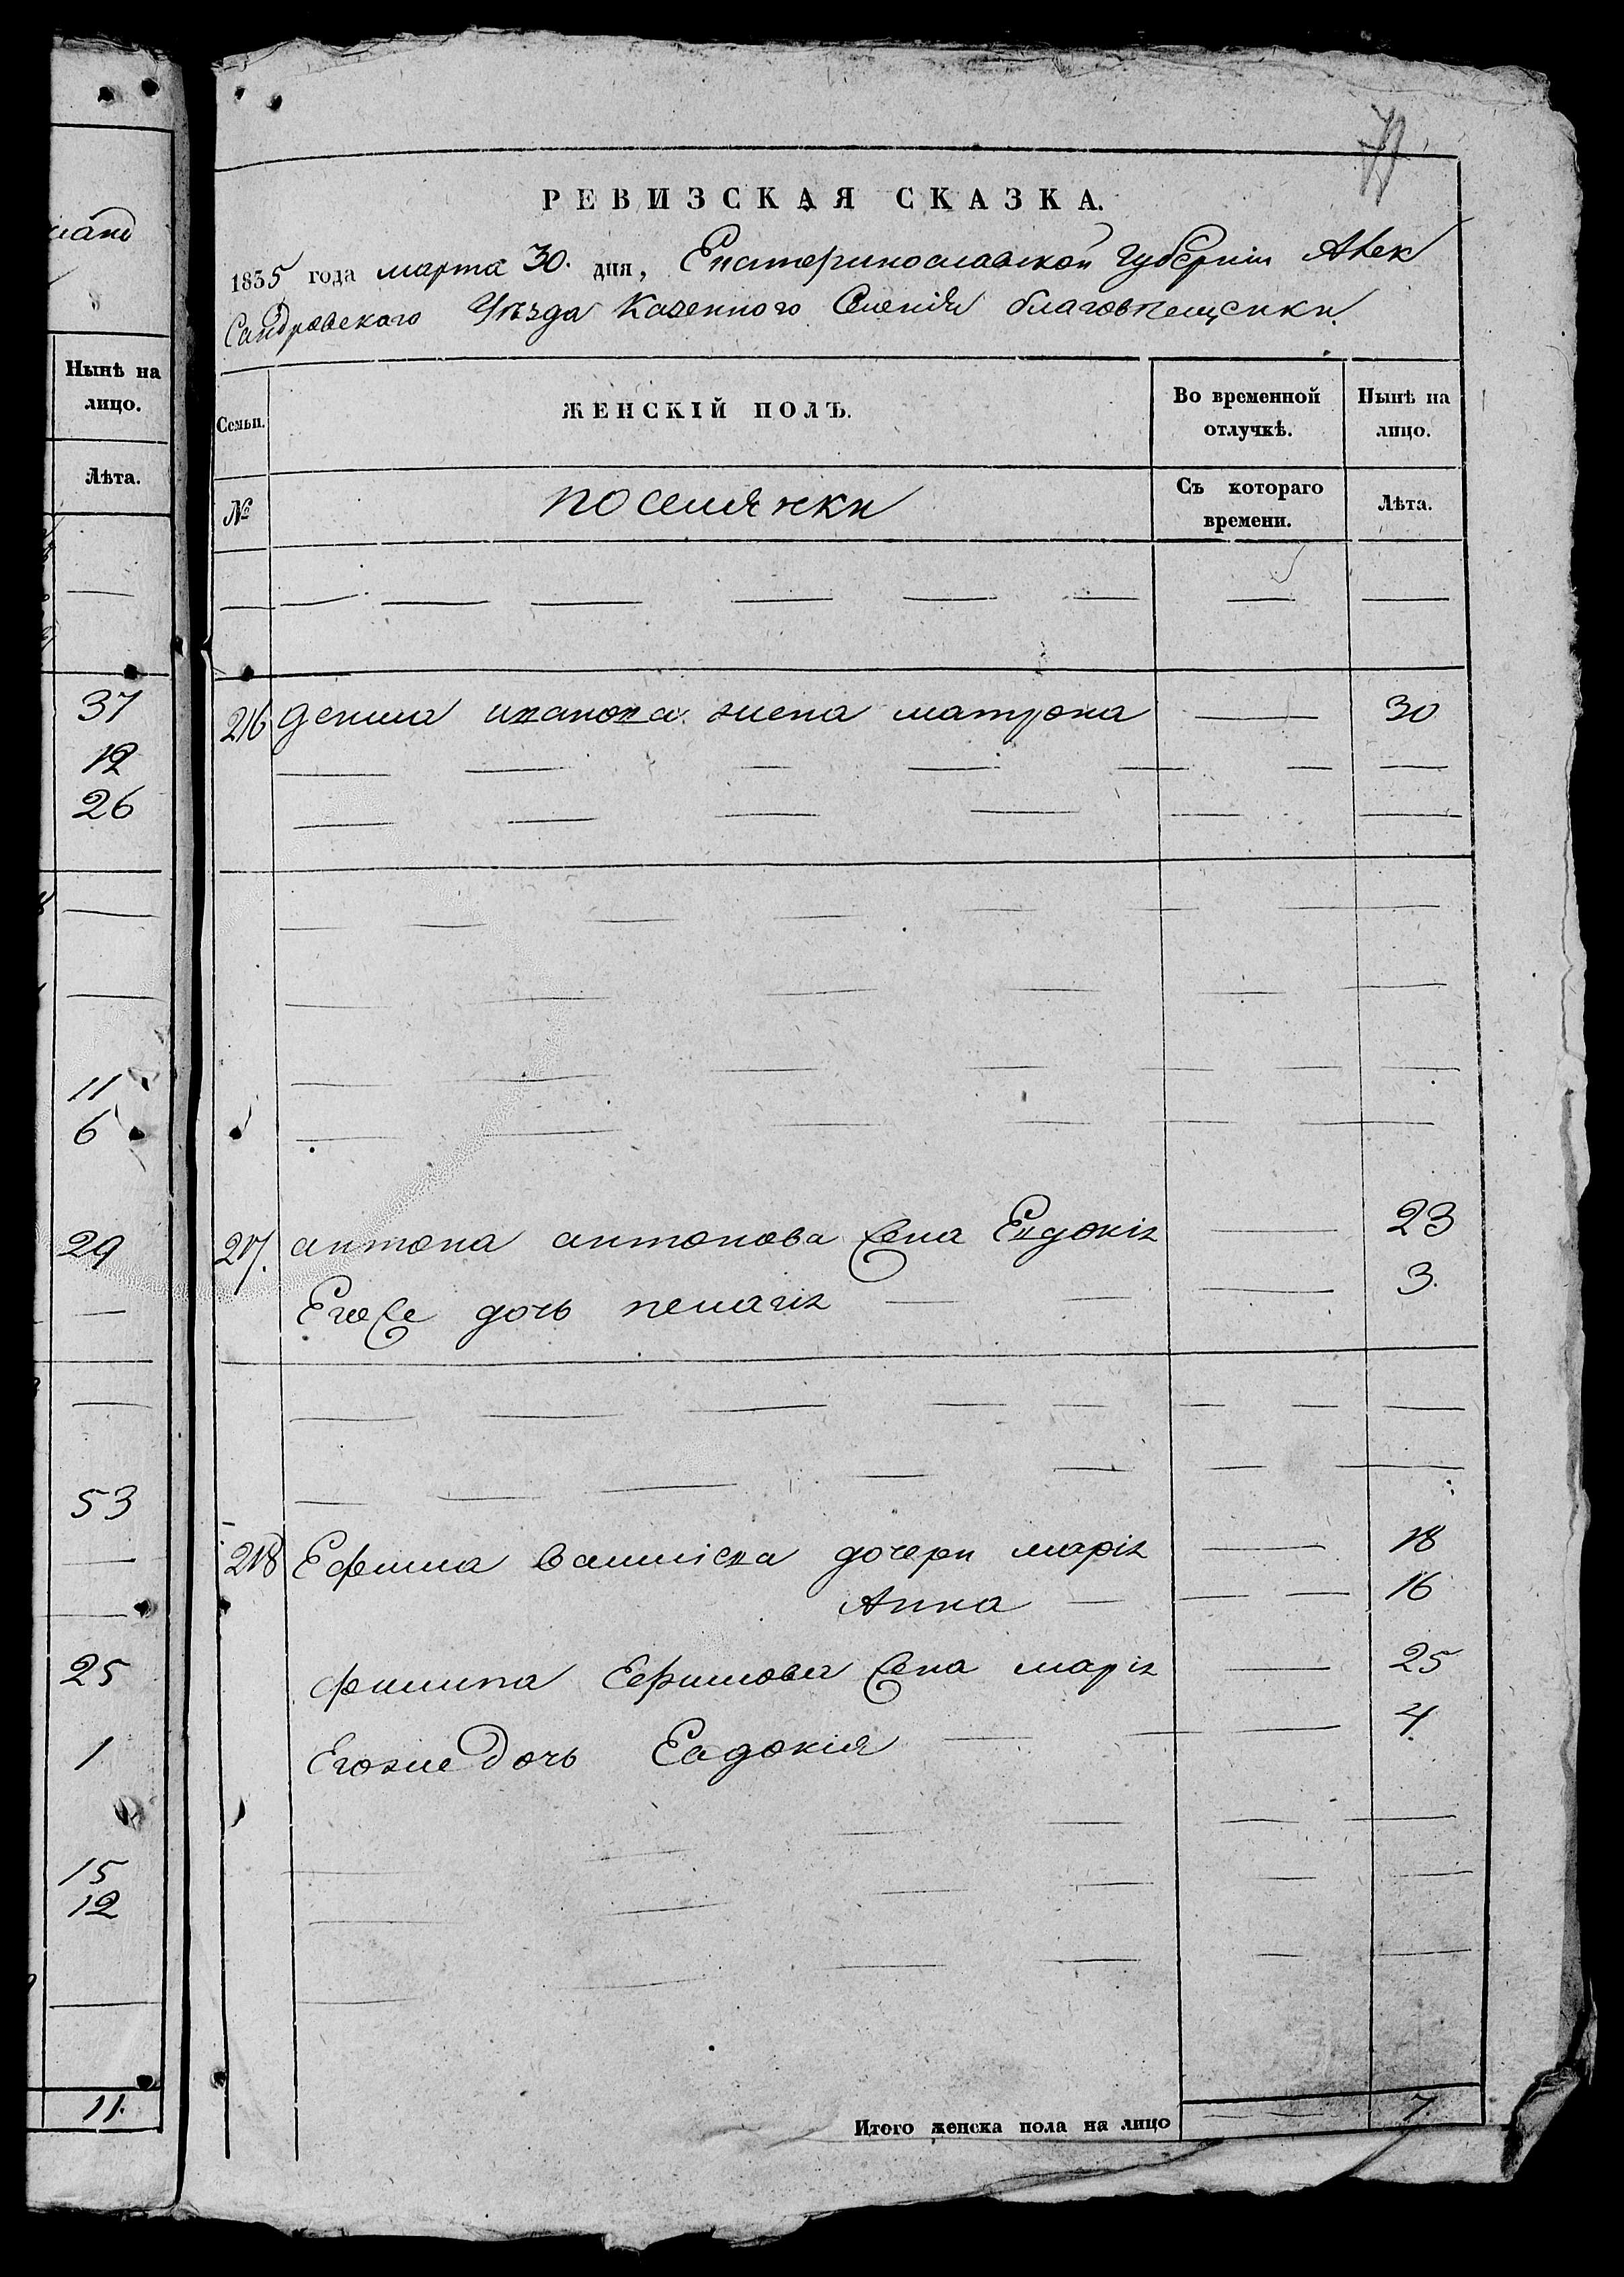 РЕВИЗСКАЯ СКАЗКА.
1835 года марта 30. дня, Екатеринославской губерніи Алек
сандровского Уѣзда Казенного Селенія благовѣщенки.
Семьи.
ЖЕНСКІЙ ПОЛЪ.
Во временной отлучкѣ.
Нынѣ на лицо.
№
поселянки
Съ котораго времени.
Лѣта.
216 дениса иванова жена матрона 30
217. антона антонова жена Евдокія 23
Егоже дочь пелагія 3.
218 Ефима дочери марія 18
Анна 16
филипа Ефимова жена марія 25
Егоже дочь Евдокія 4.
Итого женска пола на лицо 7
Нынѣ на
лицо.
Лѣта.
37
12
26
11
6
29
53
25
1
15
12
11.